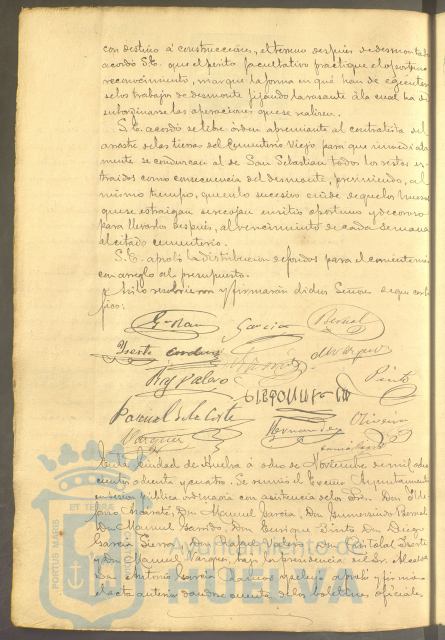 con destino á construcciones, el terreno despues de desmontado
acordó S.E. que el perito facultativo practique el oportuno
reconocimiento, marque la forma en qué han de egecutar
selos trabajos de desmonte fijando la rasante á la cual ha de
subordinarse las operaciones que se realicen.
S.E. acordó se libre orden apremiante al contratista del
arrastre de las tierras del Cementerio Viejo para que inmediata
mente se conduzcan al de San Sebastian todos los restos es
traidos como consecuencia del desmonte, previniendo, al
mismo tiempo, que en lo sucesivo cuide de que los huesos
que se estraigan se recojan en sitio oportuno y decoroso
para llevarlos despues, al vencimiento de cada semana
al citado cementerio.
S.E. aprobó la distribucion de fondos para el corriente mes
con arreglo al presupuesto.
Y asi lo resolvieron y firmarán dichos Señores de que certi
fico:
Garcia
Bernal
Duarte
Vazquez
Raf Valero
Pinto
Pascual de la Corte
Hernandez
Oliveira
Vazquez
En la Ciudad de Huelva á ocho de Noviembre de mil ocho
cientos ochenta y cuatro. Se reunió el Excmo Ayuntamiento
en sesion publica ordinaria con asistencia de los Sres. Don
Don Manuel Garcia, Don Gumersindo Bernal
Don Manuel Garrido, Don Enrique Pinto, Don Diego
Garcia Sierra, Don Rafael Valero, Don
y Don Manuel Vazquez, bajo la presidencia del Sr. Alcalde
Don Antonio Garcia Ramos y se leyó aprobó y firmó
el acta anterior dandose cuenta de los boletines oficiales
PORTUS MARIS
ET TERRAE
Ayuntamiento de
HUELVA